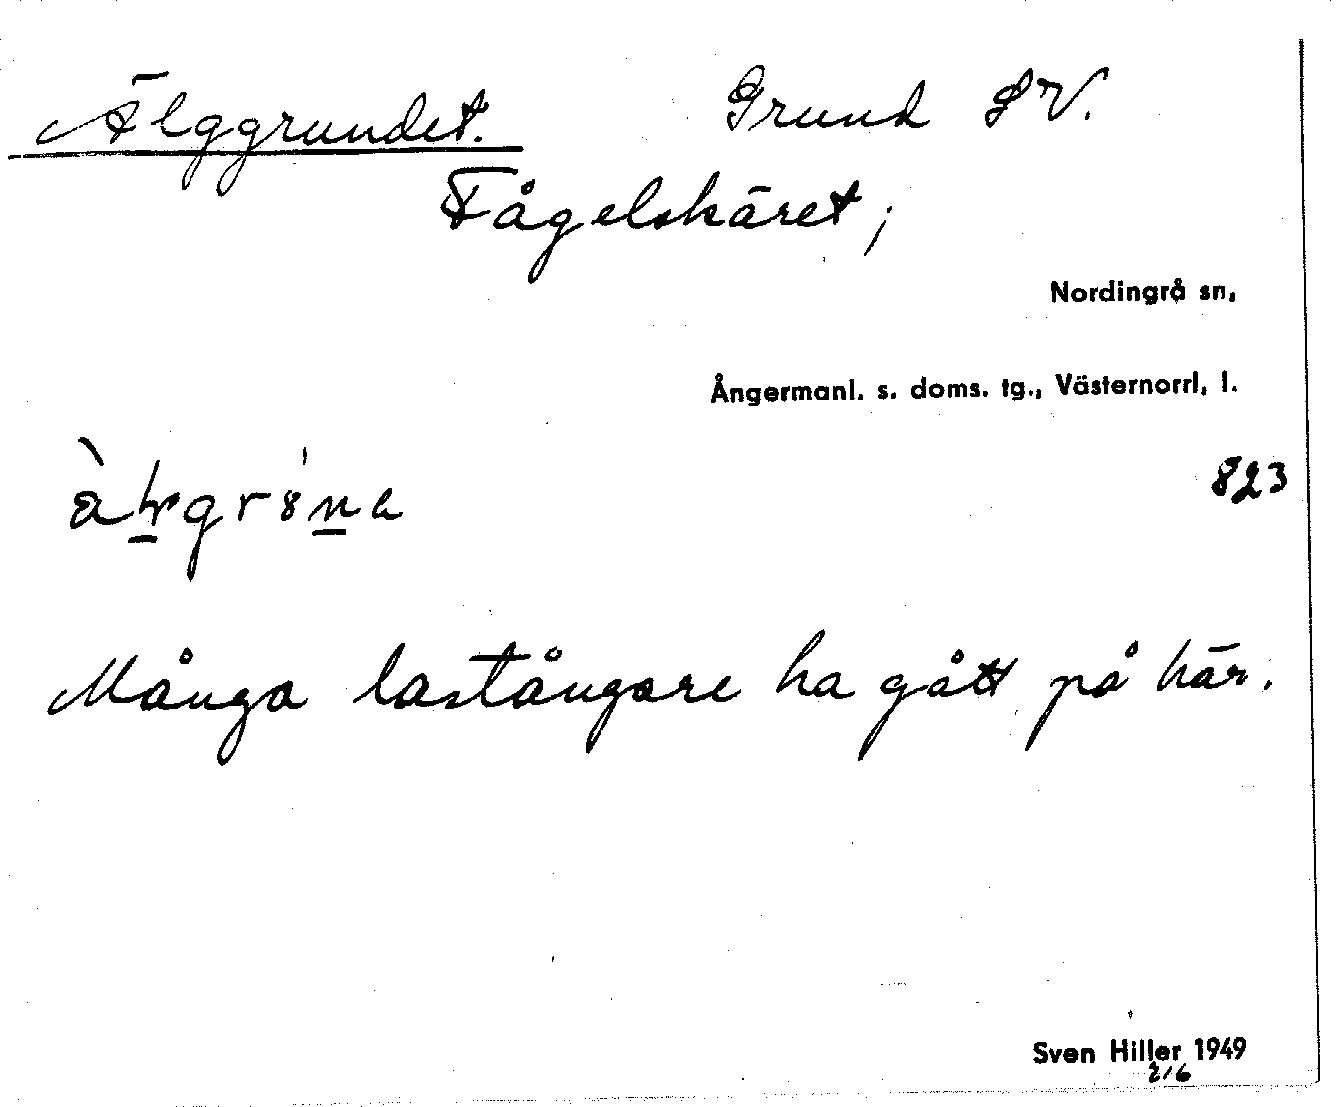 Älggrundet. Grund SV.
Fågelskäret;
Nordingrå sn,
Ångermanl. s. doms. tg., Västernorrl. l.
823
Många lastångare ha gått på här.
Sven Hiller 1949
2/6